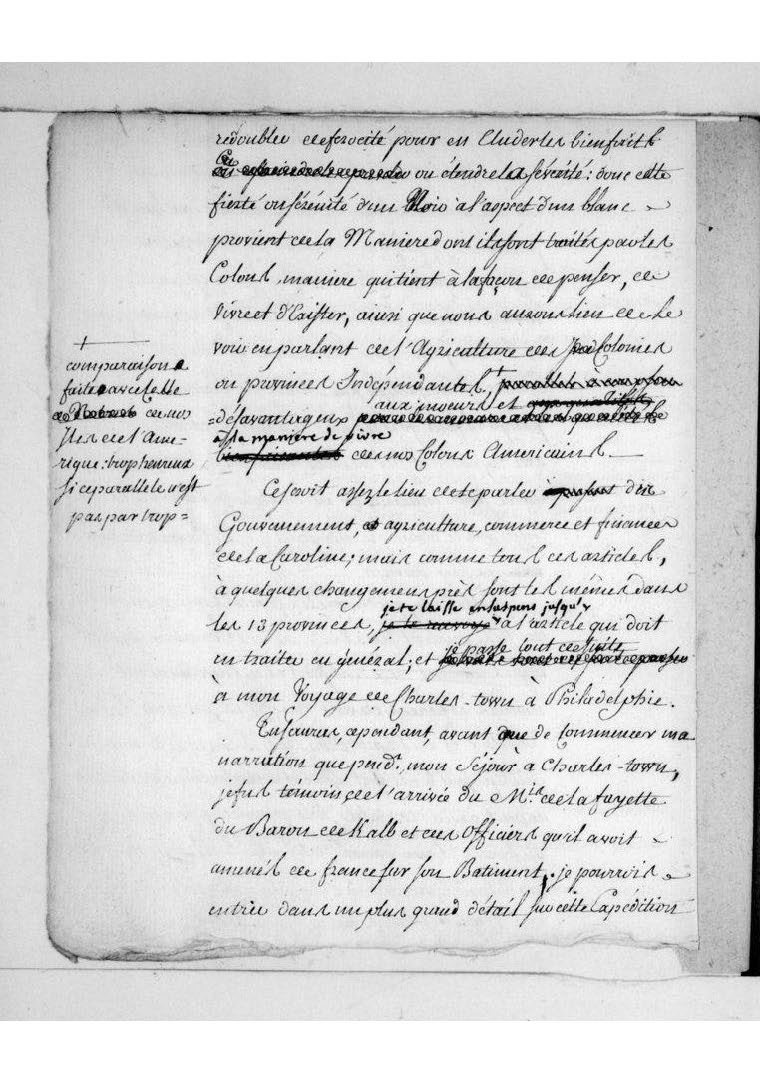 redoubler de ferocité pour en Eluder les bienfaits
ou étendre la sévérité: donc cette
fierté ou sérénité d'un Noir à l'aspect d'un blanc
provient de la Maniere dont ils sont traités par les
Colons, maniere qui tient à la façon de penser, de
vivre et d'Exister, ainsi que nous aurons lieu de le
voir en parlant de l'Agriculture des Colonies
ou provinces Indépendantes, +
aux moeurs et
= désavantageux
à la maniere de vivre
de nos Colons Americains.
+
comparaison
faite avec celle
de nos
Isles de l'Ame-
rique: trop heureux
si ce parallele n'est
pas par trop =
Ce seroit assez le lieu de te parler des
Gouvernement, agriculture, commerce et finances
de la Caroline; mais comme tous ces articles,
à quelques changemens près sont les mêmes dans
je te laisse en suspens jusqu'
les 13 provinces, à l'article qui doit
je passe tout de suite
en traiter en général; et
à mon Voyage de Charles-town à Philadelphie.
Tu sauras, cependant, avant que de Commencer ma
narration que pend.t mon Séjour à Charles-town,
je fus témoins de l'arrivée du M.is de la fayette
du Baron de Kalb et des Officiers qu'il avoit
amenés de france sur son Batiment. je pourrois
entrer dans un plus grand détail sur cette Expédition